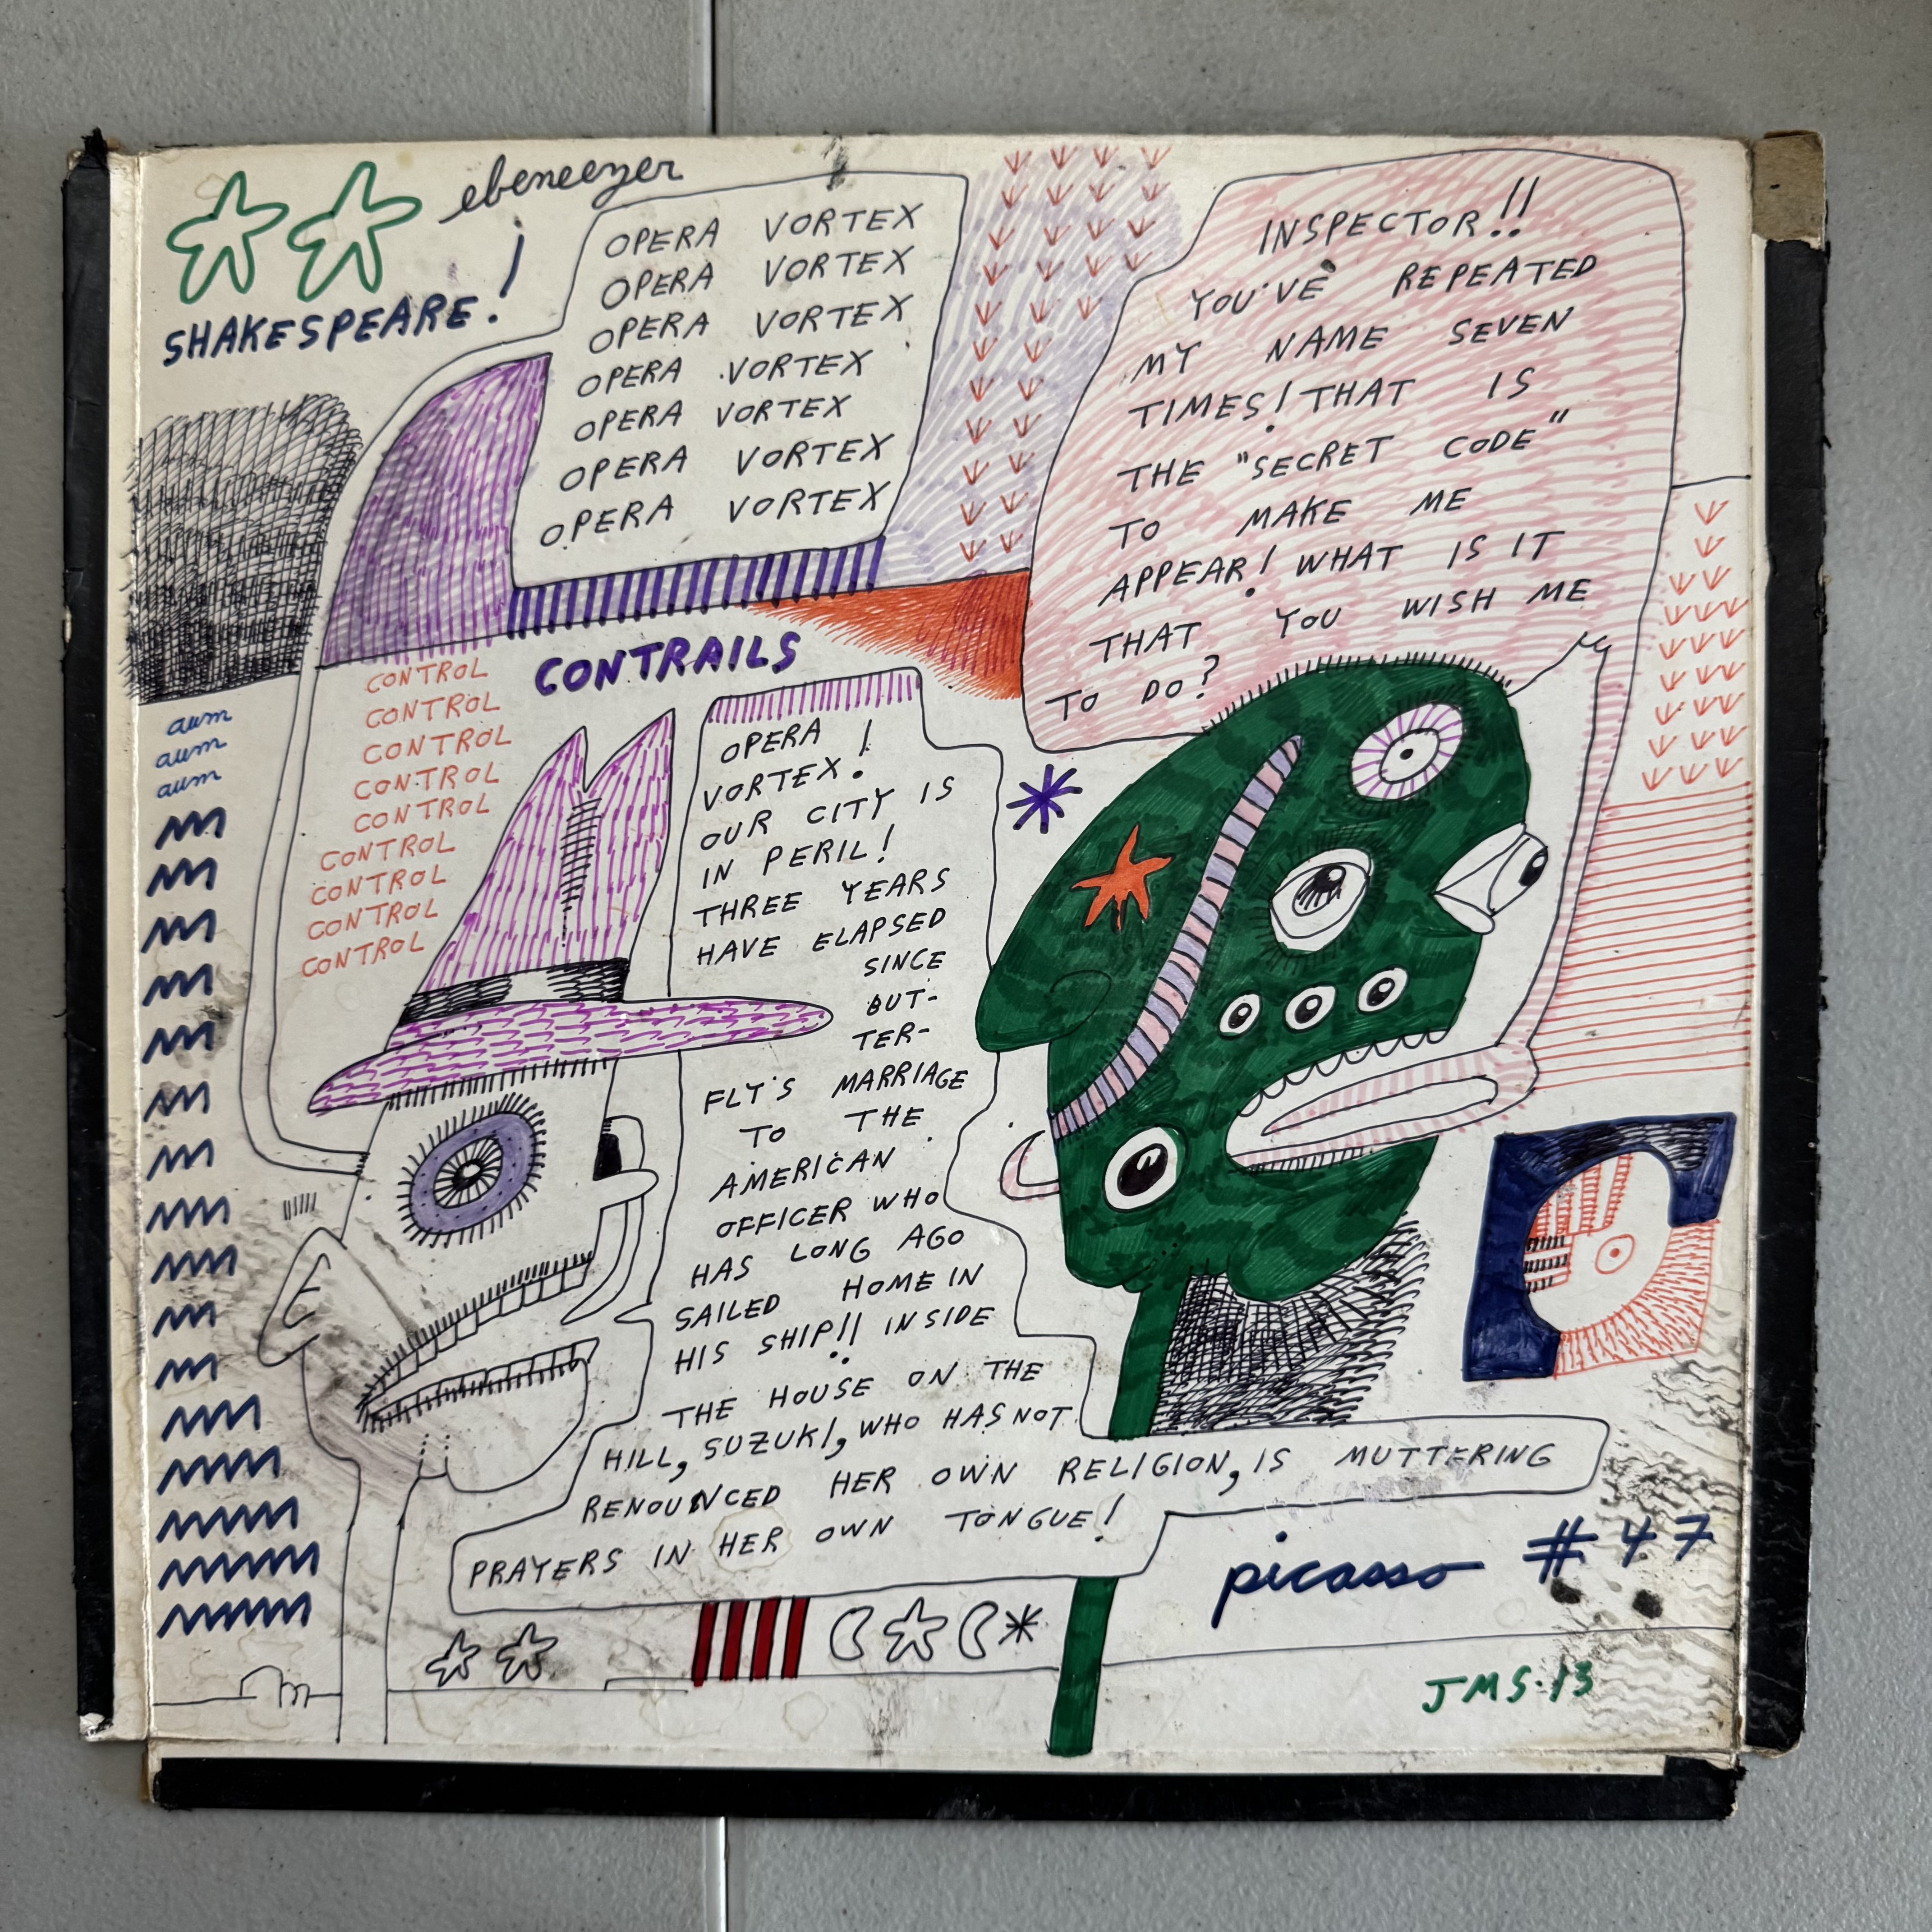 ebeneezer
SHAKESPEARE!
OPERA VORTEX
OPERA VORTEX
OPERA VORTEX
OPERA VORTEX
OPERA VORTEX
OPERA VORTEX
OPERA VORTEX
INSPECTOR!!
YOU'VE REPEATED
MY NAME SEVEN
TIMES! THAT IS
THE "SECRET CODE"
TO MAKE ME
APPEAR! WHAT IS IT
THAT YOU WISH ME
TO DO?
CONTRAILS
CONTROL
CONTROL
CONTROL
CONTROL
CONTROL
CONTROL
CONTROL
CONTROL
CONTROL
aum
aum
aum
OPERA
VORTEX!
OUR CITY IS
IN PERIL!
THREE YEARS
HAVE ELAPSED
SINCE
BUT-
TER-
FLY'S MARRIAGE
TO THE
AMERICAN
OFFICER WHO
HAS LONG AGO
SAILED HOME IN
HIS SHIP!! INSIDE
THE HOUSE ON THE
HILL, SUZUKI, WHO HAS NOT
RENOUNCED HER OWN RELIGION, IS MUTTERING
PRAYERS IN HER OWN TONGUE!
picasso #47
JMS.13